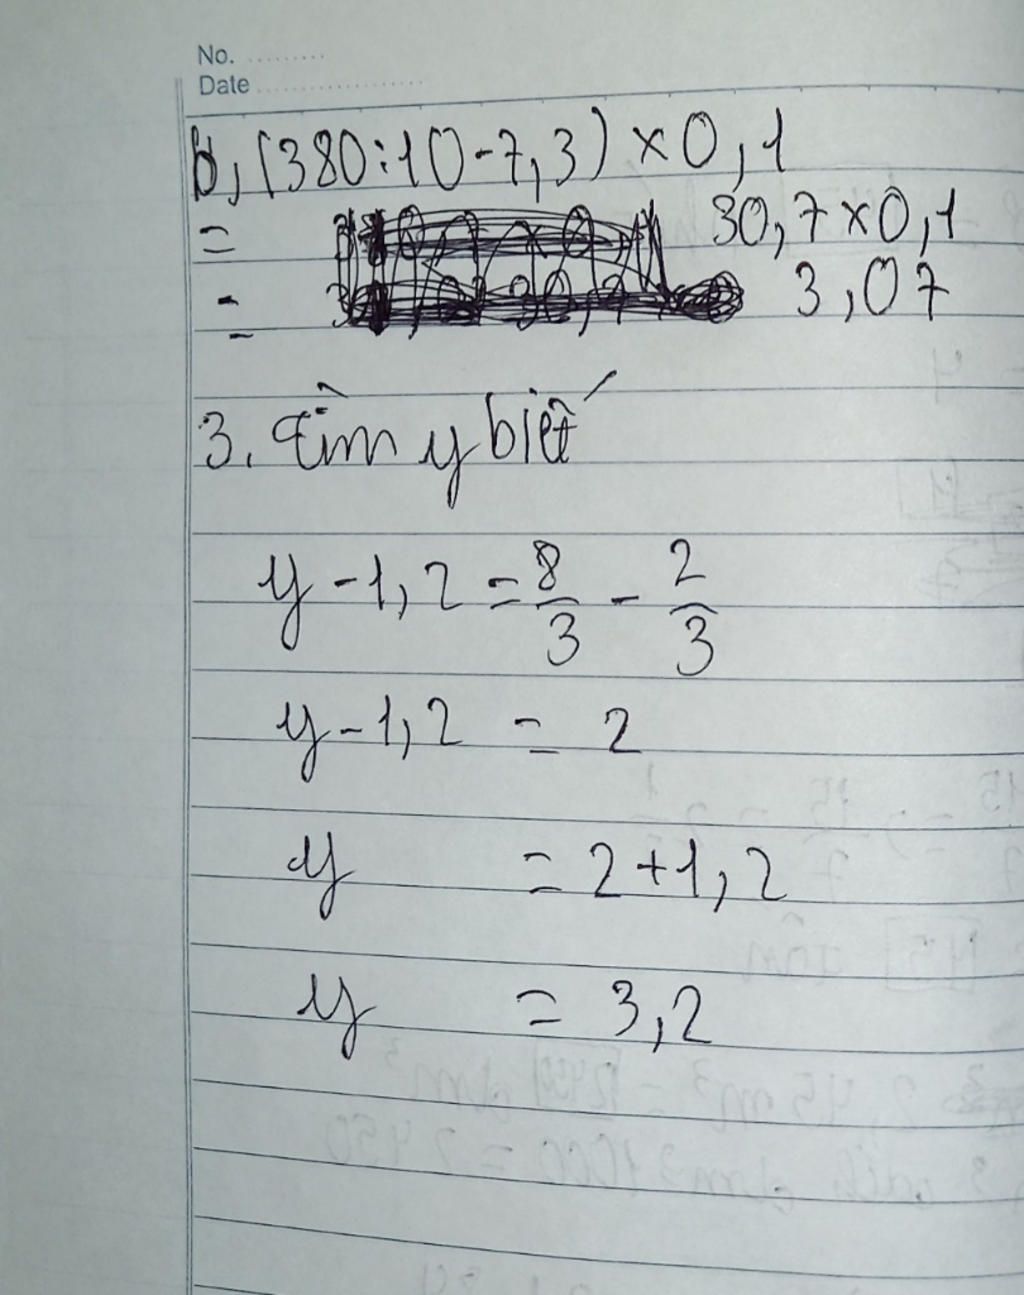 No.
Date
b, (380:10-7,3) x 0,1
= 30,7 x 0,1
= 3,07
3. Tìm y biết
y - 1,2 = 8/3 - 2/3
y - 1,2 = 2
y = 2 + 1,2
y = 3,2